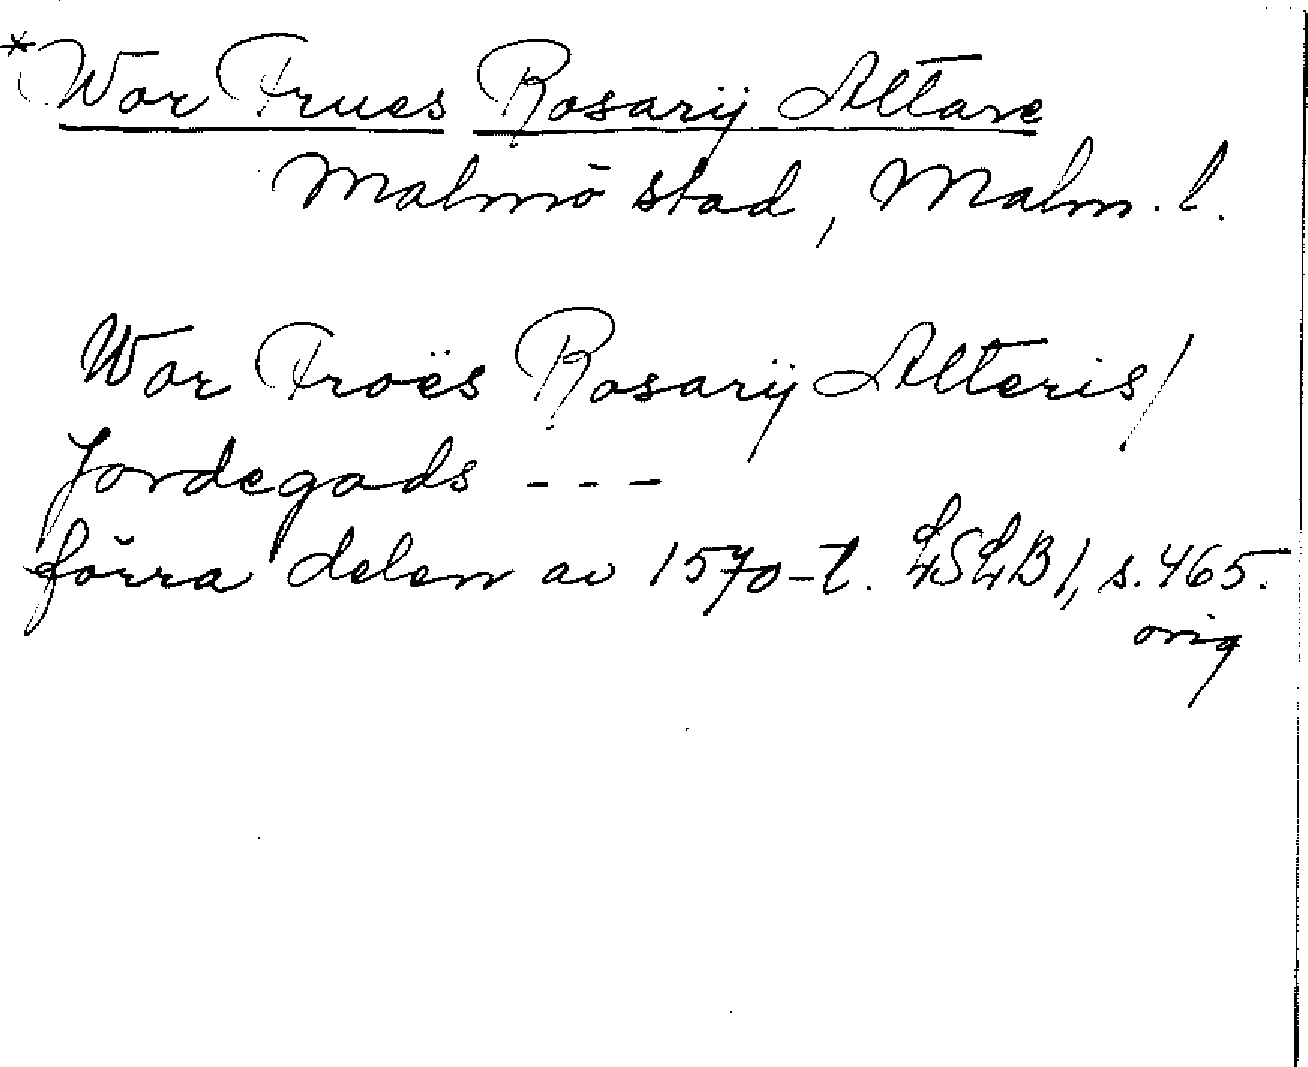 *Wor Frues Rosarij Altare
Malmö stad, Malm. l.
Wor Froës Rosarij Alteris/
Jordegods ---
förra delen av 1570-t. LSLB I, s. 465.
orig